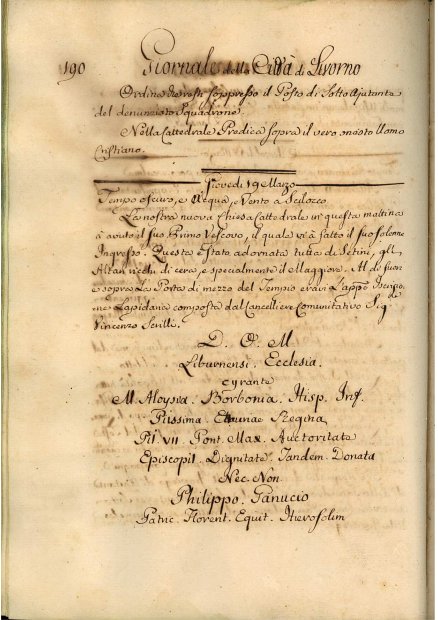 190 Giornale della Città di Livorno
Ordine che resti soppresso il Posto di Sotto Ajutante
del denunciato Squadrone.
Nella Cattedrale Predica sopra il vero onesto Uomo
Cristiano.
Giovedì 19 Marzo
Tempo oscuro, e Acqua, e Vento a Scilocco
La nostra nuova Chiesa Cattedrale in questa mattina
à avuto il suo Primo Vescovo, il quale vi à fatto il suo solenne
Ingresso. Questa è stata adornata tutta di Setini, gli
Altari ricchi di cera, e specialmente il Maggiore. Al di fuori
e sopra La Porta di mezzo del Tempio eravi L'appo Iscrizio
ne Lapidaria composta dal Cancelliere Comunitativo Sig
Vincenzo
D. O. M
Liburnensi. Ecclesia.
Curante
M. Aloysia. Borbonia. Hisp. Inf.
Piissima. Etruriae Regina
Pii VII. Pont. Max. Auctoritate
Episcopii. Dignitate. Tandem. Donata
Nec. Non.
Philippo. Ganucio
Patric. Florent. Equit. Hierosolim